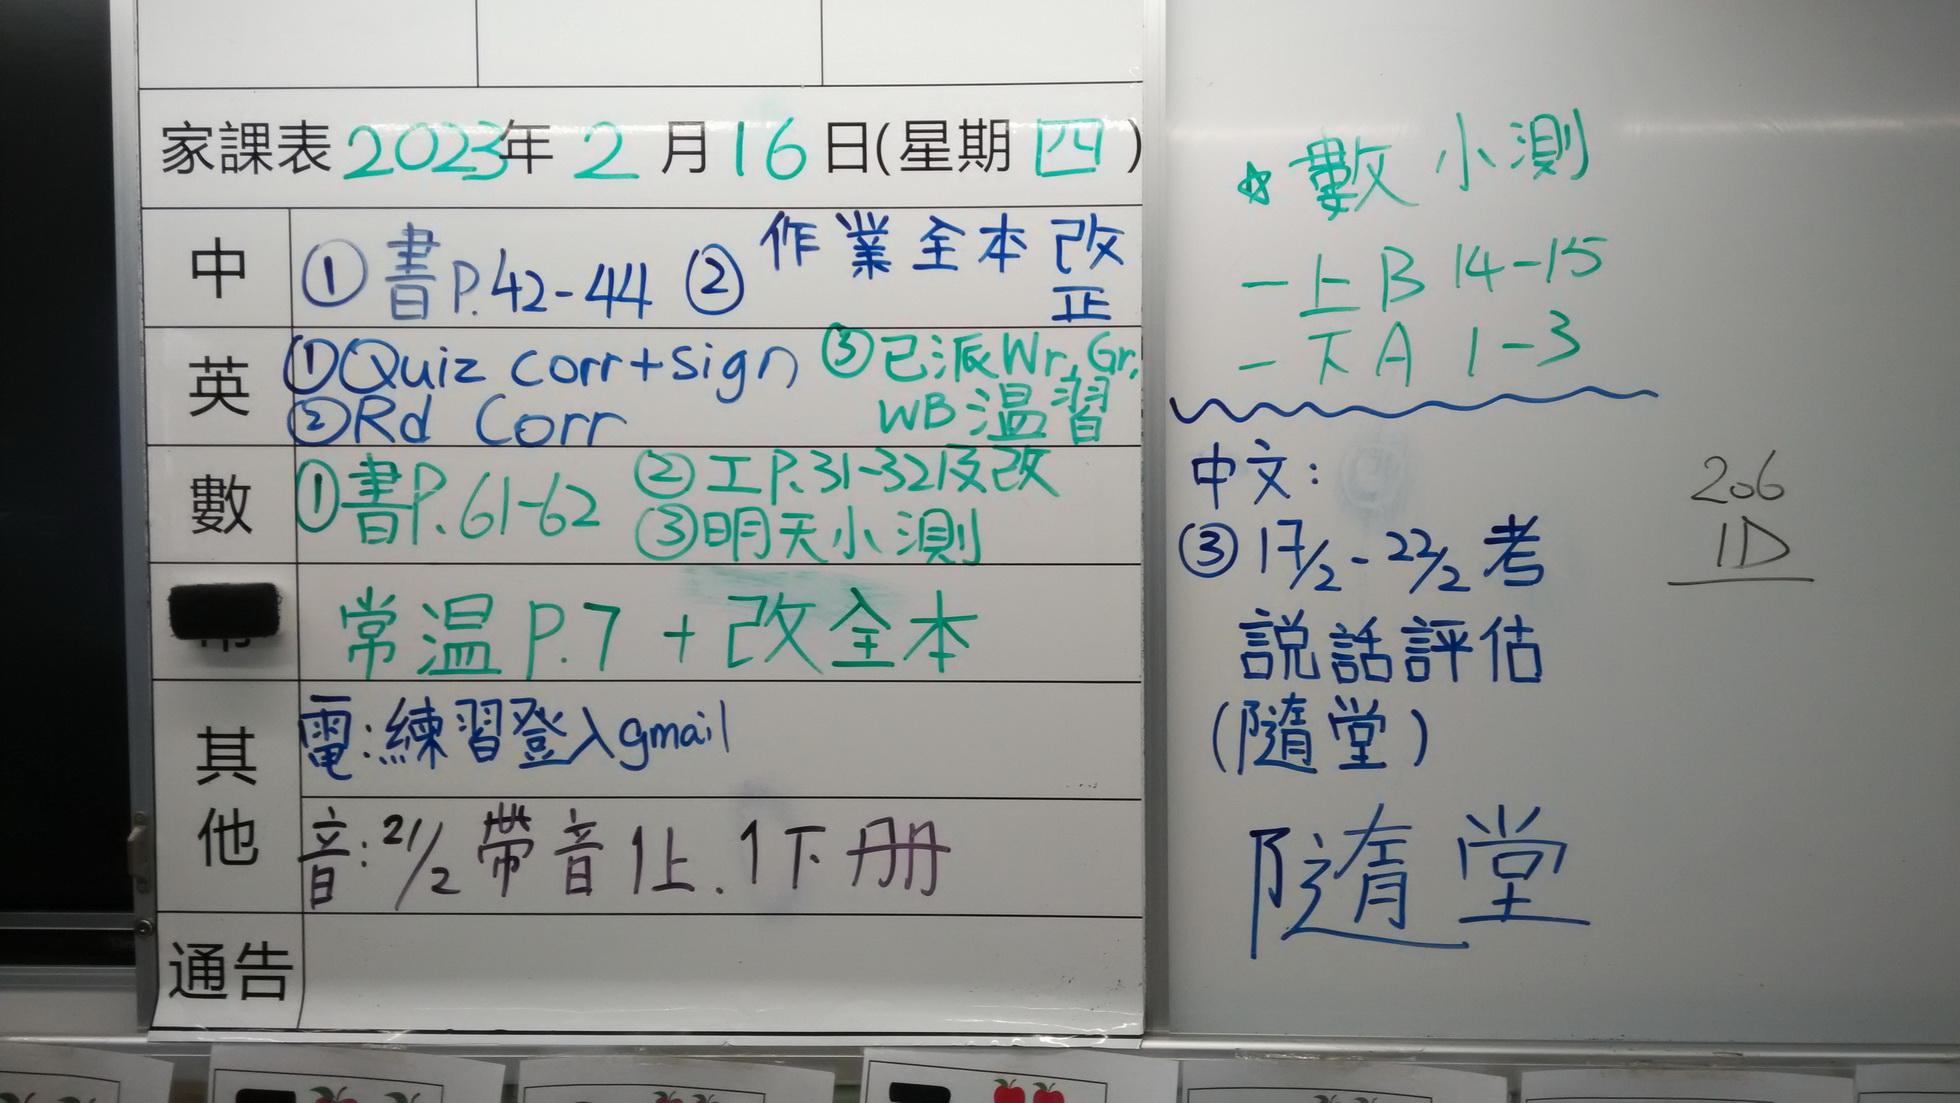 家課表 2023年 2 月 16 日(星期 四 )
中
① 書 P.42-44 ② 作業全本改
正
英
① Quiz corr+sign ③ 已派Wr, Gr,
② Rd Corr WB 溫習
數
① 書P.61-62 ② 工P.31-32及改
③ 明天小測
常
常溫 P.7 + 改全本
其他
電:練習登入gmail
音: 21/2 帶音1上.1下冊
通告
☆ 數 小測
- 上 B 14-15
- 下 A 1-3
中文:
③ 17/2 - 22/2 考
説話評估
(隨堂)
隨堂
206
1D